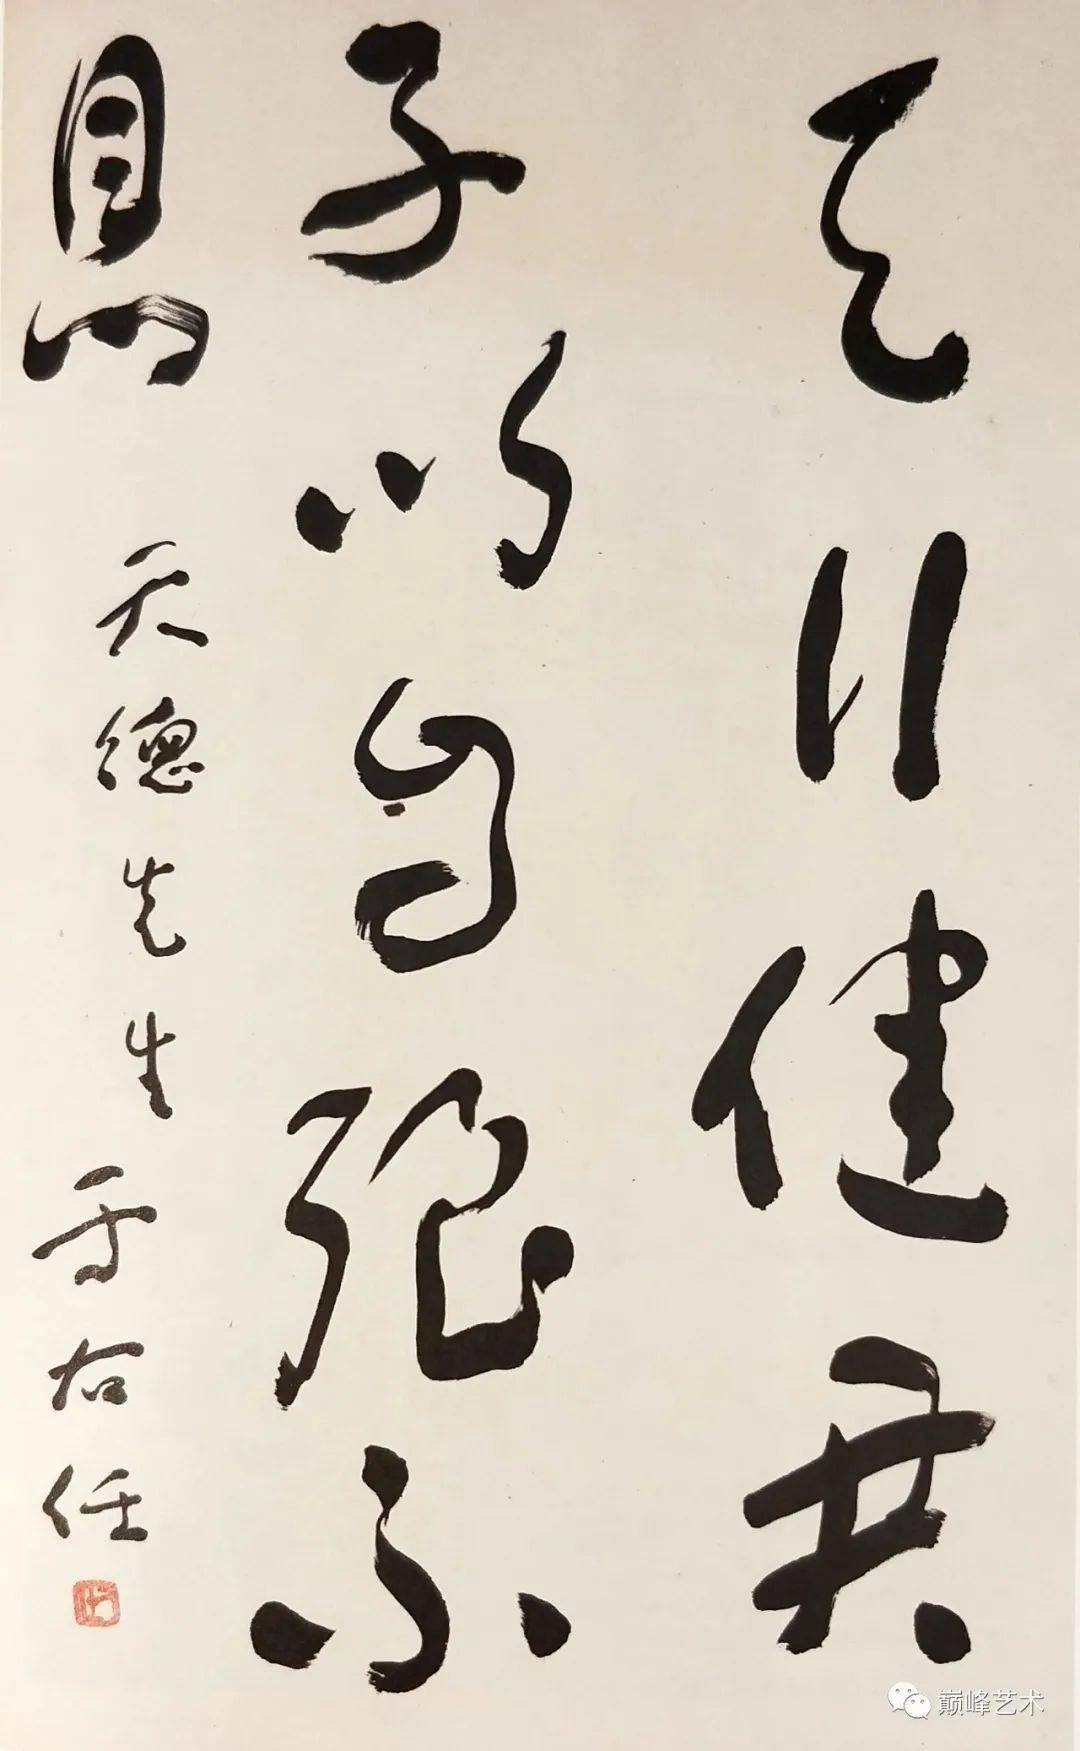 天行健君
子以自强不
息
天德先生
于右任
巅峰艺术